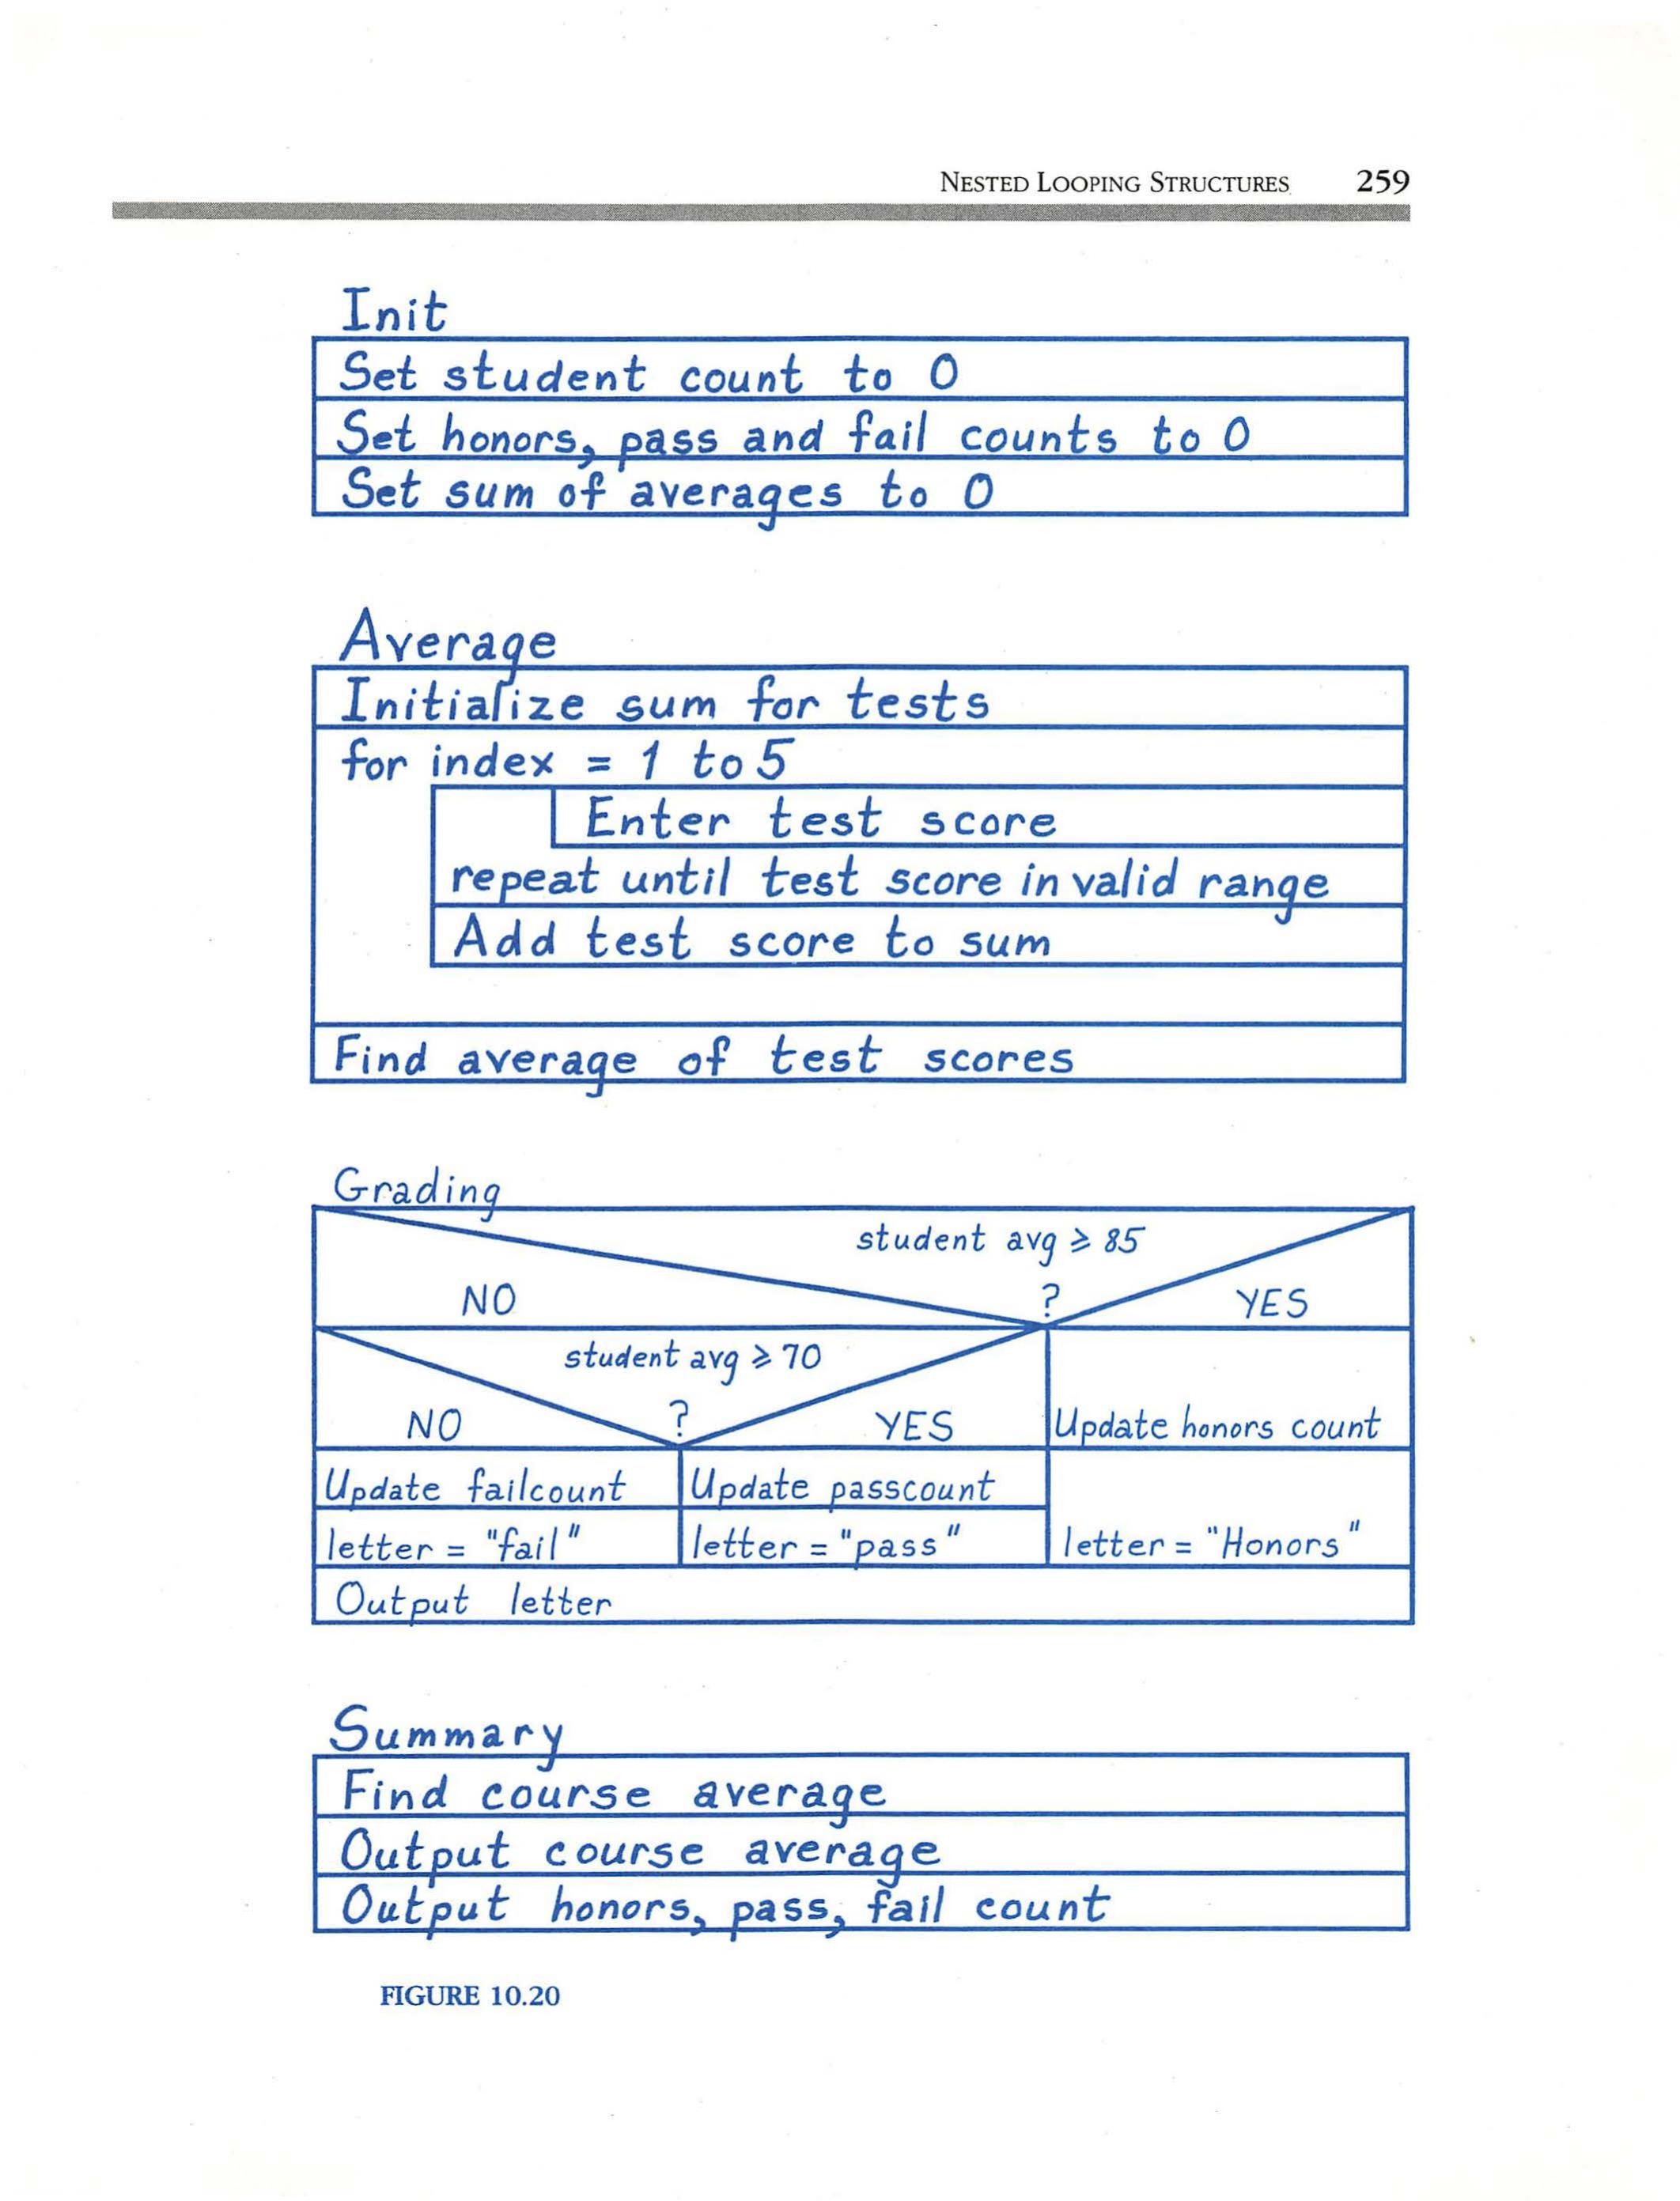 NESTED LOOPING STRUCTURES 259
Init
Set student count to 0
Set honors, pass and fail counts to 0
Set sum of averages to 0
Average
Initialize sum for tests
for index = 1 to 5
Enter test score
repeat until test score in valid range
Add test score to sum
Find average of test scores
Grading
student avg ⩾ 85
NO ? YES
student avg ⩾ 70
NO ? YES Update honors count
Update failcount Update passcount
letter = "fail" letter = "pass" letter = "Honors"
Output letter
Summary
Find course average
Output course average
Output honors, pass, fail count
FIGURE 10.20